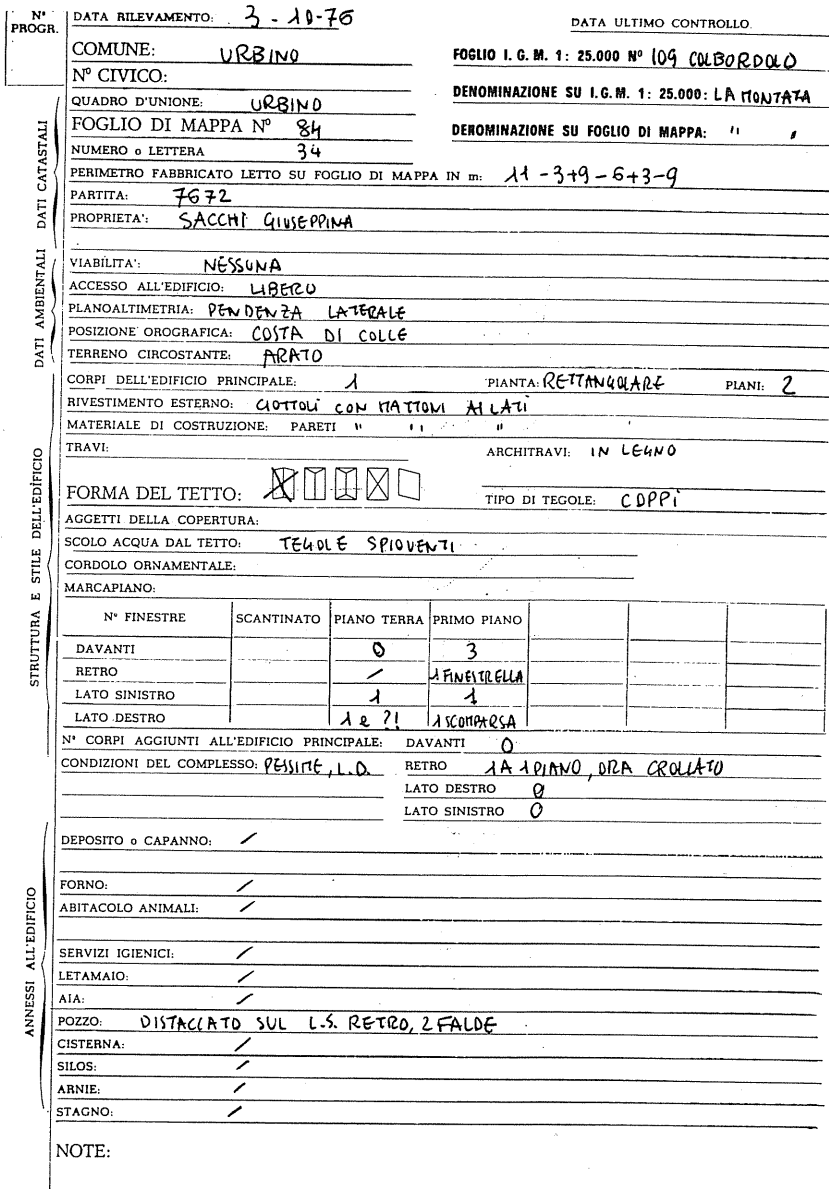 N° PROGR.
DATA RILEVAMENTO: 3 - 10-76
DATA ULTIMO CONTROLLO
COMUNE: URBINO
FOGLIO I. G. M. 1: 25.000 N° 109 COLBORDOLO
N° CIVICO:
DENOMINAZIONE SU I.G.M. 1: 25.000: LA MONTATA
QUADRO D'UNIONE: URBINO
FOGLIO DI MAPPA N° 84
DENOMINAZIONE SU FOGLIO DI MAPPA: " "
NUMERO o LETTERA 34
PERIMETRO FABBRICATO LETTO SU FOGLIO DI MAPPA IN m: 11 - 3+9 - 6+3-9
PARTITA: 7672
PROPRIETA': SACCHI GIUSEPPINA
DATI CATASTALI
VIABILITA': NESSUNA
ACCESSO ALL'EDIFICIO: LIBERO
PLANOALTIMETRIA: PENDENZA LATERALE
POSIZIONE OROGRAFICA: COSTA DI COLLE
TERRENO CIRCOSTANTE: ARATO
DATI AMBIENTALI
CORPI DELL'EDIFICIO PRINCIPALE: 1 PIANTA: RETTANGOLARE PIANI: 2
RIVESTIMENTO ESTERNO: CIOTTOLI CON MATTONI AI LATI
MATERIALE DI COSTRUZIONE: PARETI " " "
TRAVI:
ARCHITRAVI: IN LEGNO
FORMA DEL TETTO:
TIPO DI TEGOLE: COPPI
AGGETTI DELLA COPERTURA:
SCOLO ACQUA DAL TETTO: TEGOLE SPIOVENTI
CORDOLO ORNAMENTALE:
MARCAPIANO:
N° FINESTRE SCANTINATO PIANO TERRA PRIMO PIANO
DAVANTI 0 3
RETRO / 1 FINESTRELLA
LATO SINISTRO 1 1
LATO DESTRO 1 e ?! 1 SCOMPARSA
STRUTTURA E STILE DELL'EDIFICIO
N° CORPI AGGIUNTI ALL'EDIFICIO PRINCIPALE: DAVANTI 0
CONDIZIONI DEL COMPLESSO: PESSIME, L.D. RETRO 1 A 1 PIANO, ORA CROLLATO
LATO DESTRO 0
LATO SINISTRO 0
DEPOSITO o CAPANNO: /
FORNO: /
ABITACOLO ANIMALI: /
SERVIZI IGIENICI: /
LETAMAIO: /
AIA: /
POZZO: DISTACCATO SUL L.S. RETRO, 2 FALDE
CISTERNA: /
SILOS: /
ARNIE: /
STAGNO: /
ANNESSI ALL'EDIFICIO
NOTE: